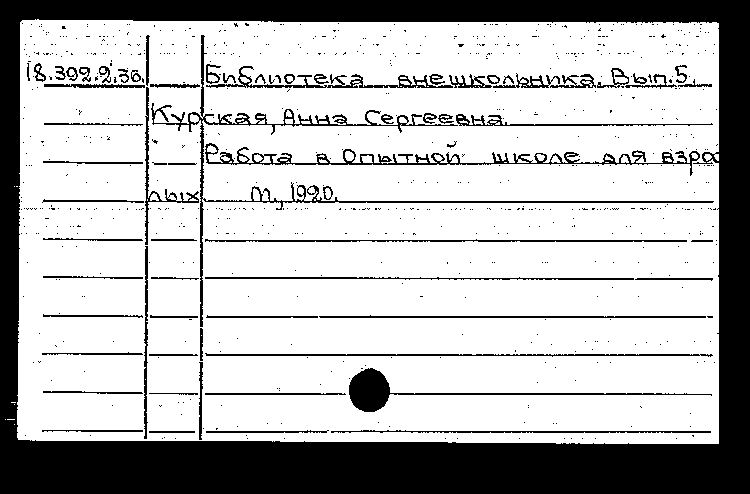 18.392.2.36. Библиотека внешкольника. Вып.5.
Курская, Анна Сергеевна.
Работа в Опытной школе для взрос
лых М., 1920.